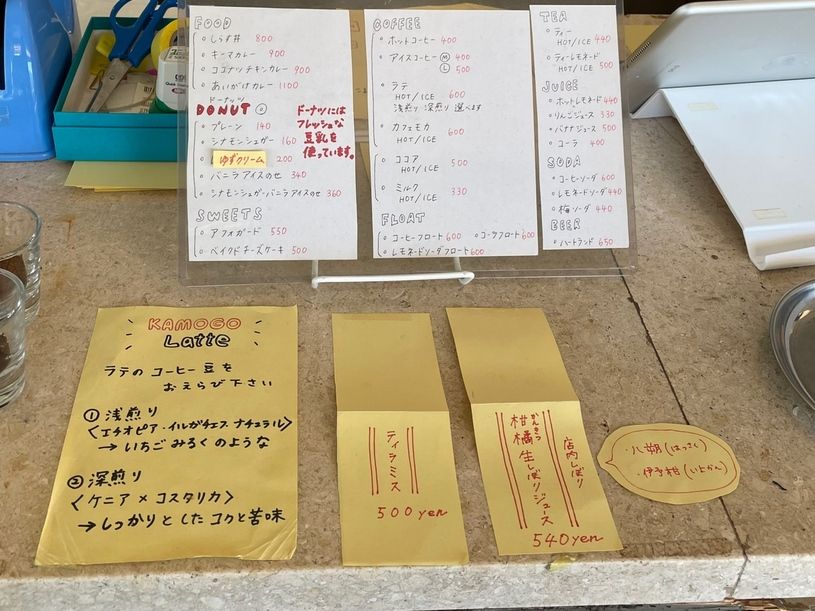 FOOD
しらす丼 800
キーマカレー 900
ココナッツチキンカレー 900
あいがけカレー 1100
ドーナッツ
DONUT
プレーン 140
シナモンシュガー 160
ゆずクリーム 200
バニラアイスのせ 340
シナモンシュガーバニラアイスのせ 360
ドーナツには
フレッシュな
豆乳を
使っています。
SWEETS
アフォガード 550
ベイクドチーズケーキ 500
COFFEE
ホットコーヒー 400
アイスコーヒー M 400
L 500
ラテ
HOT/ICE 600
浅煎り 深煎り 選べます
カフェモカ
HOT/ICE 600
ココア
HOT/ICE 500
ミルク
HOT/ICE 330
FLOAT
コーヒーフロート 600 コーラフロート 600
レモネードソーダフロート 600
TEA
ティー
HOT/ICE 440
ティーレモネード
HOT/ICE 500
JUICE
ホットレモネード 440
りんごジュース 330
バナナジュース 500
コーラ 400
SODA
コーヒーソーダ 600
レモネードソーダ 440
梅ソーダ 440
BEER
ハートランド 650
KAMOGO
Latte
ラテのコーヒー豆を
おえらび下さい
① 浅煎り
〈エチオピア・イルガチェフ ナチュラル〉
→ いちごみるくのような
② 深煎り
〈ケニア×コスタリカ〉
→ しっかりとしたコクと苦味
ティラミス
500yen
かんきつ
柑橘生しぼりジュース
店内しぼり
540yen
・八朔(はっさく)
・伊予柑(いよかん)